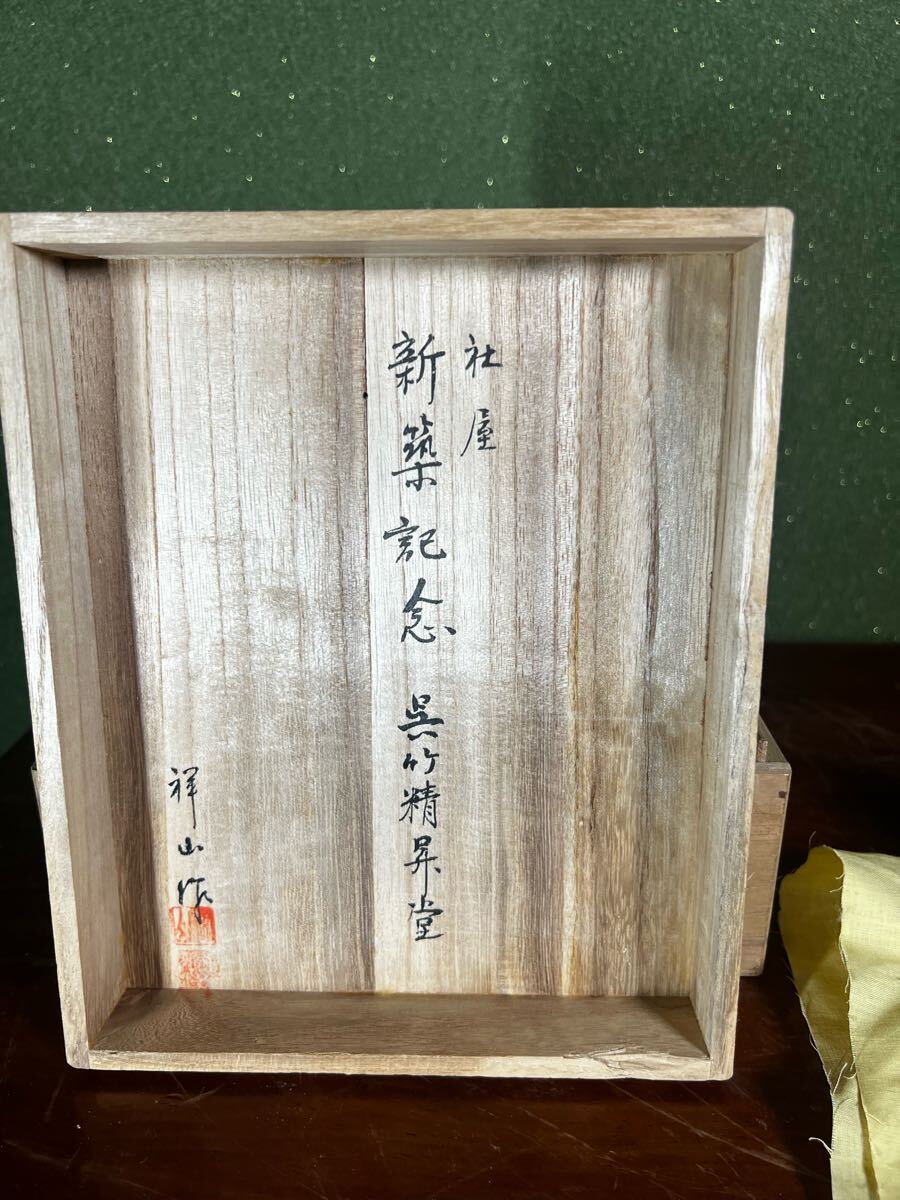 社屋
新築記念 呉竹精昇堂
祥山作